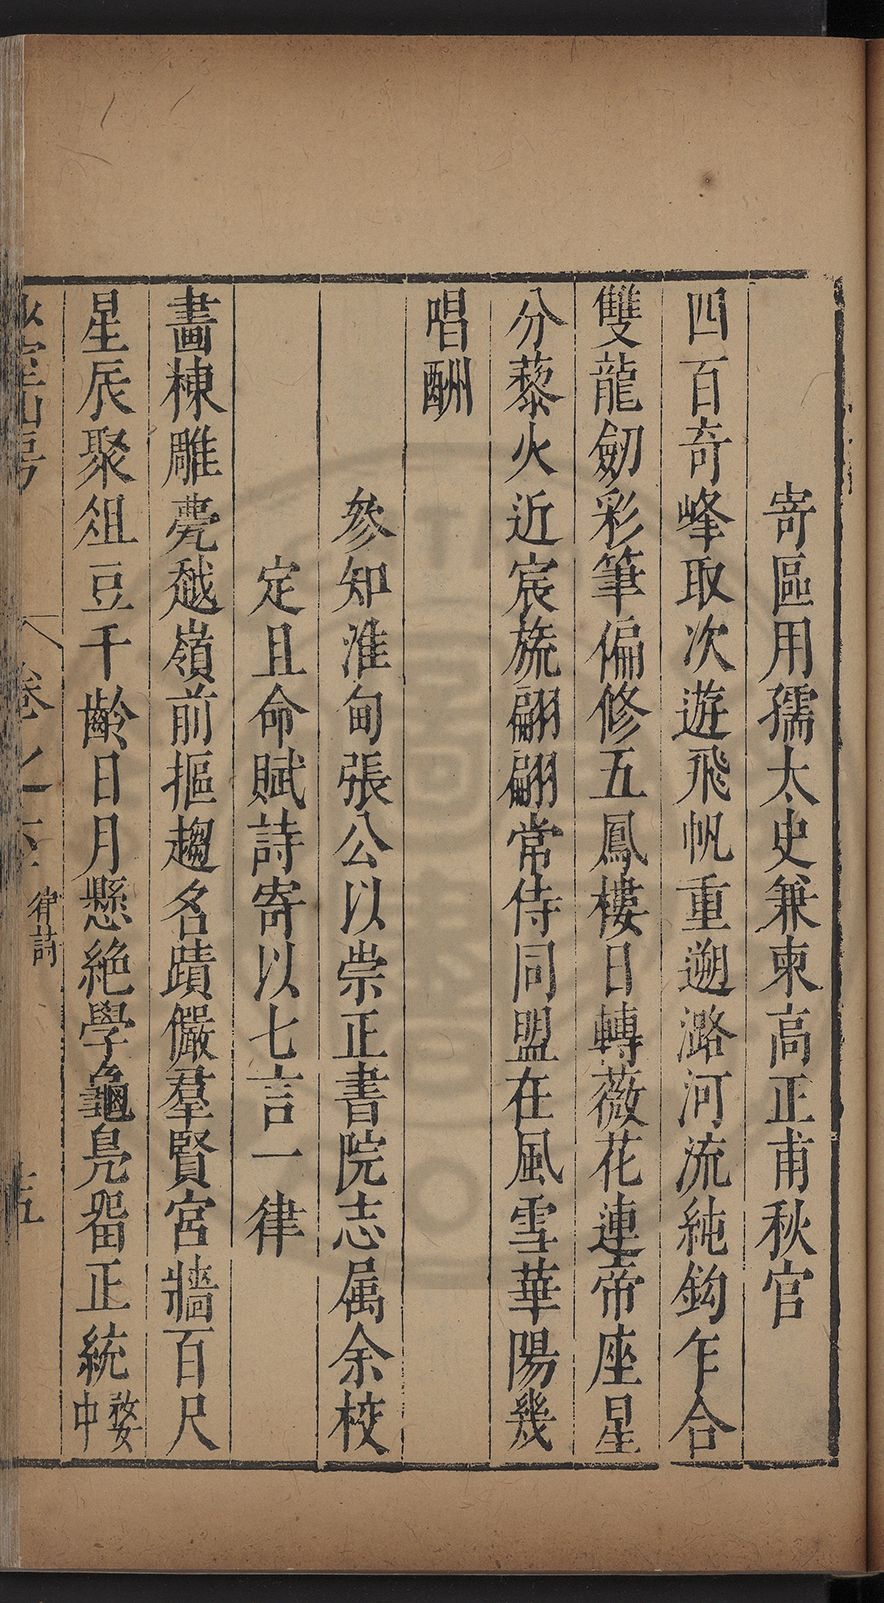 寄區用孺太史兼柬高正甫秋官
四百奇峰取次遊飛帆重遡潞河流純鈎乍合
雙龍劒彩筆偏修五鳳樓日轉薇花連帝座星
分藜火近宸旒翩翩常侍同盟在風雪華陽幾
唱酬
參知淮甸張公以崇正書院志属余校
定且命賦詩寄以七言一律
畫棟雕甍越嶺前摳趨名蹟儼羣賢宮牆百尺
星辰聚俎豆千齡日月懸絶學龜鳧畱正統婺
中
卷之
律詩
五